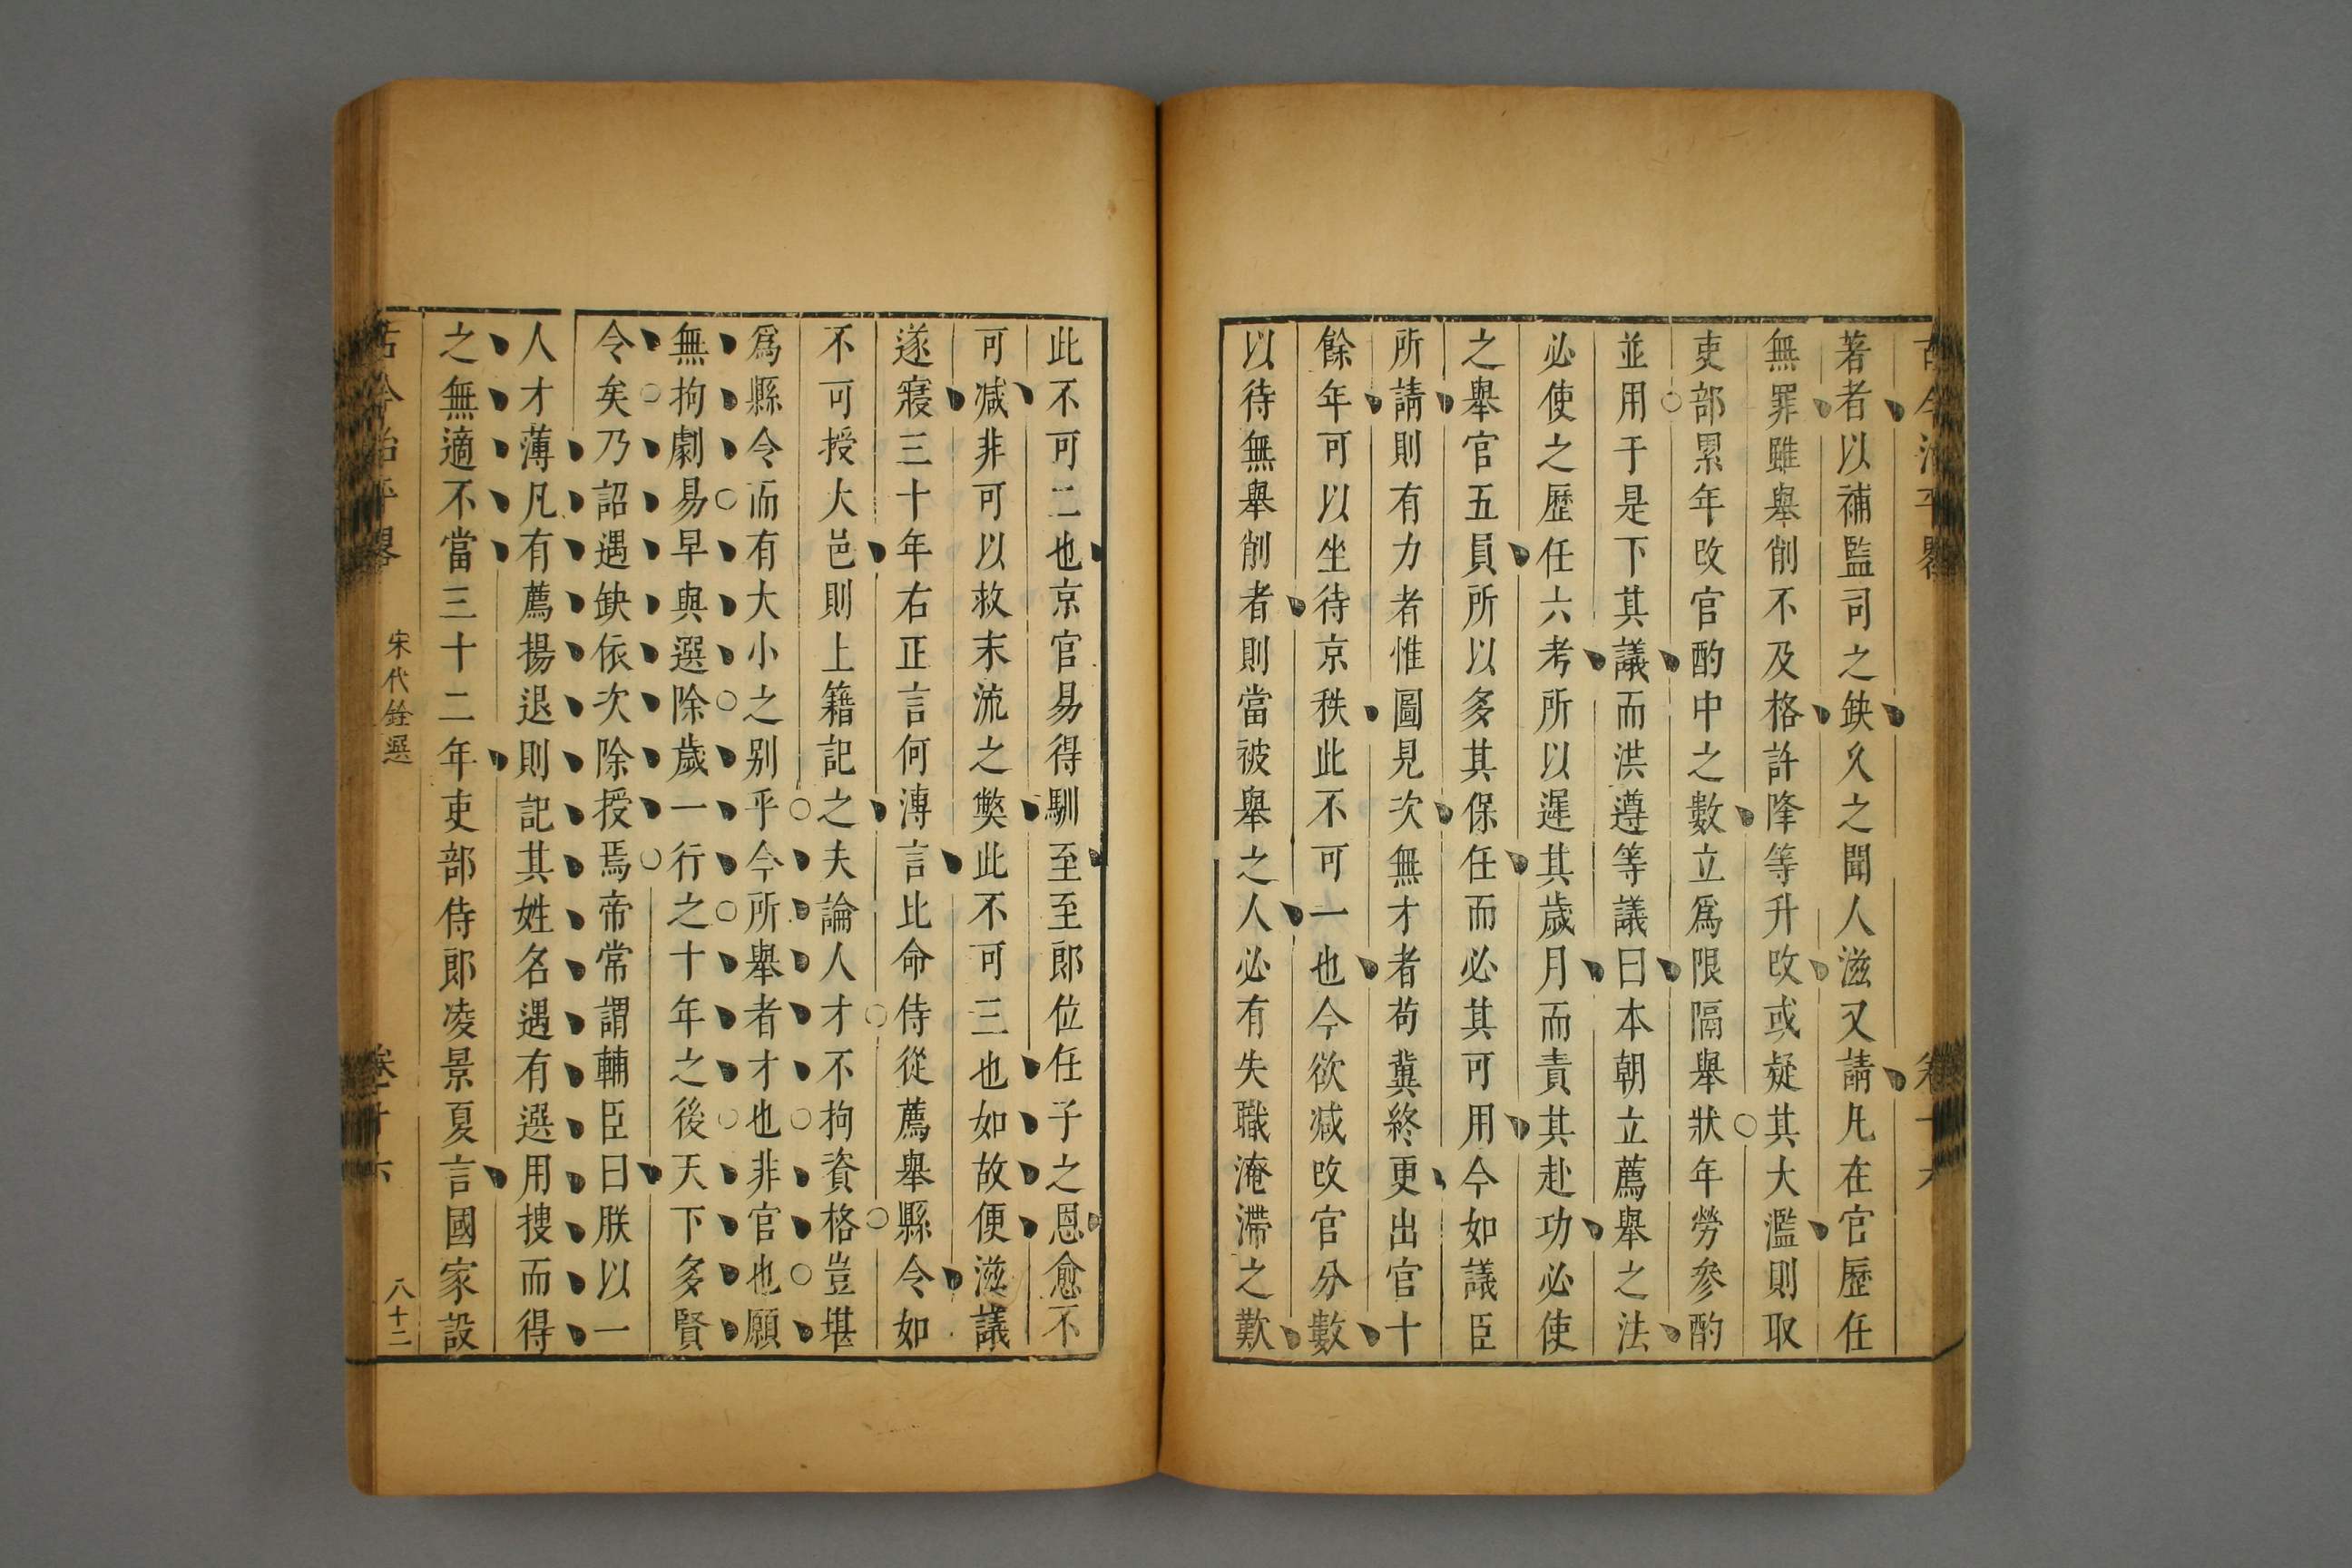 古今治平畧
卷十六
著者以補監司之缺久之聞人滋又請凡在官歷任
無罪雖舉削不及格許降等升改或疑其大濫則取
吏部累年改官酌中之數立爲限隔舉狀年勞參酌
並用于是下其議而洪遵等議曰本朝立薦舉之法
必使之歷任六考所以遲其歲月而責其赴功必使
之舉官五員所以多其保任而必其可用今如議臣
所請則有力者惟圖見次無才者苟冀終更出官十
餘年可以坐待京秩此不可一也今欲减改官分數
以待無舉削者則當被舉之人必有失職淹滯之歎
此不可二也京官易得馴至至郎位任子之恩愈不
可减非可以救末流之獘此不可三也如故便滋議
遂寢三十年右正言何溥言比命侍從薦舉縣令如
不可授大邑則上籍記之夫論人才不拘資格豈堪
爲縣令而有大小之别乎今所舉者才也非官也願
無拘劇易早與選除歲一行之十年之後天下多賢
令矣乃詔遇缺依次除授焉帝常謂輔臣曰朕以一
人才薄凡有薦揚退則記其姓名遇有選用捜而得
之無適不當三十二年吏部侍郎凌景夏言國家設
古今治平畧
宋代銓選
卷十六
八十二